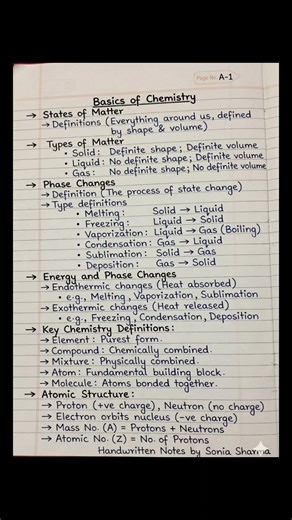 Page No. A-1
Basics of Chemistry
→ States of Matter
→ Definitions (Everything around us, defined
by shape & volume)
→ Types of Matter
• Solid: Definite shape; Definite volume
• Liquid: No definite shape; Definite volume
• Gas: No definite shape; No definite volume
→ Phase Changes
→ Definition (The process of state change)
→ Type definitions
• Melting: Solid → Liquid
• Freezing: Liquid → Solid
• Vaporization: Liquid → Gas (Boiling)
• Condensation: Gas → Liquid
• Sublimation: Solid → Gas
• Deposition: Gas → Solid
→ Energy and Phase Changes
→ Endothermic changes (Heat absorbed)
• e.g., Melting, Vaporization, Sublimation
→ Exothermic changes (Heat released)
• e.g., Freezing, Condensation, Deposition
→ Key Chemistry Definitions:
→ Element: Purest form.
→ Compound: Chemically combined.
→ Mixture: Physically combined.
→ Atom: Fundamental building block.
→ Molecule: Atoms bonded together.
→ Atomic Structure:
→ Proton (+ve charge), Neutron (no charge)
→ Electron orbits nucleus (-ve charge)
→ Mass No. (A) = Protons + Neutrons
→ Atomic No. (Z) = No. of Protons
Handwritten Notes by Sonia Sharma